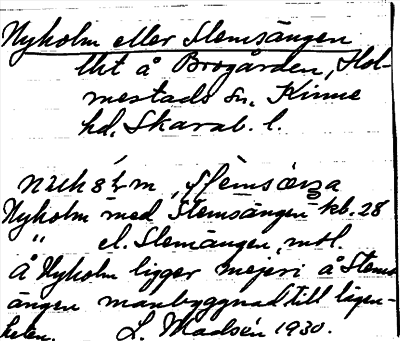 Nyholm eller Slemsängen
lht å Brogården, Hol-
mestads sn. Kinne
hd. Skarab. l.
Nyholm med Slemsängen kb. 28
" el. Slemängen, mtl.
Å Nyholm ligger mejeri å Slems
ängen manbyggnad till lägen-
heten. L. Madsén 1930.